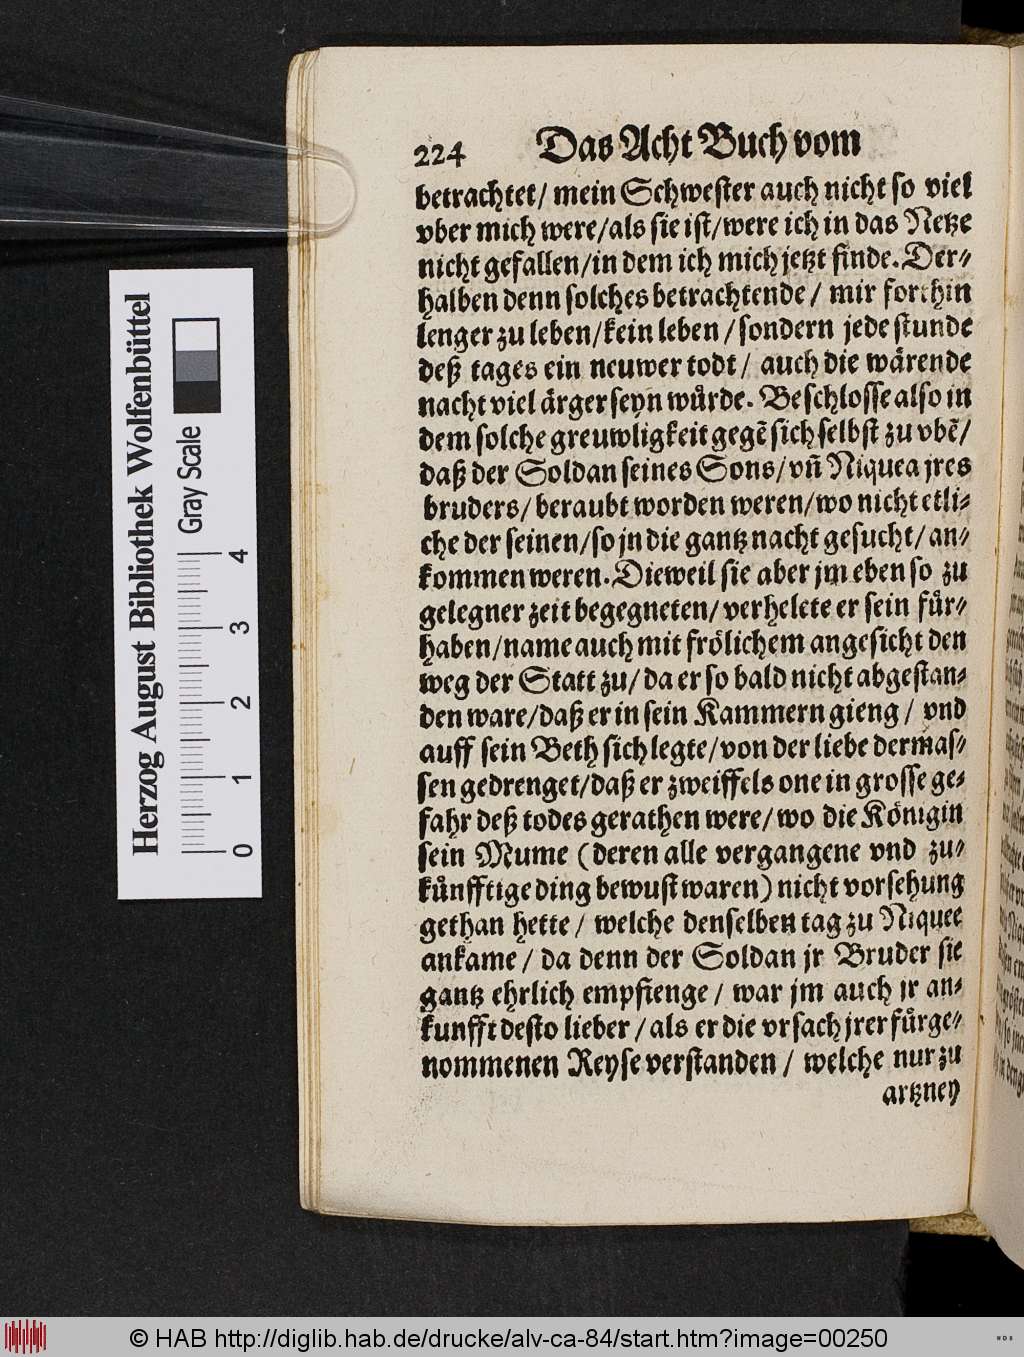 224 Das Acht Buch vom
betrachtet/ mein Schwester auch nicht so viel
vber mich were/als sie ist/were ich in das Netze
nicht gefallen/in dem ich mich jetzt finde. Der⸗
halben denn solches betrachtende/ mir forthin
lenger zu leben/kein leben/sondern jede stunde
deß tages ein neuwer todt/ auch die wärende
nacht viel ärger seyn wůrde. Beschlosse also in
dem solche greuwligkeit gegẽ sich selbst zu vbẽ/
daß der Soldan seines Sons/vñ Niquea jres
bruders/beraubt worden weren/wo nicht etli⸗
che der seinen/so jn die gantz nacht gesucht/an⸗
kommen weren. Dieweil sie aber jm eben so zu
gelegner zeit begegneten/verhelete er sein fůr⸗
haben/name auch mit frölichem angesicht den
weg der Statt zu/da er so bald nicht abgestan⸗
den ware/daß er in sein Kammern gieng/ vnd
auff sein Beth sich legte/von der liebe dermas⸗
sen gedrenget/daß er zweiffels one in grosse ge⸗
fahr deß todes gerathen were/wo die Königin
sein Mume (deren alle vergangene vnd zu⸗
kůnfftige ding bewust waren) nicht vorsehung
gethan hette/ welche denselben tag zu Niquee
ankame/ da denn der Soldan jr Bruder sie
gantz ehrlich empfienge/ war jm auch jr an⸗
kunfft desto lieber/als er die vrsach jrer fůrge⸗
nommenen Reyse verstanden/ welche nur zu
artzney
Herzog August Bibliothek Wolfenbüttel
Gray Scale
0 1 2 3 4
© HAB http://diglib.hab.de/drucke/alv-ca-84/start.htm?image=00250